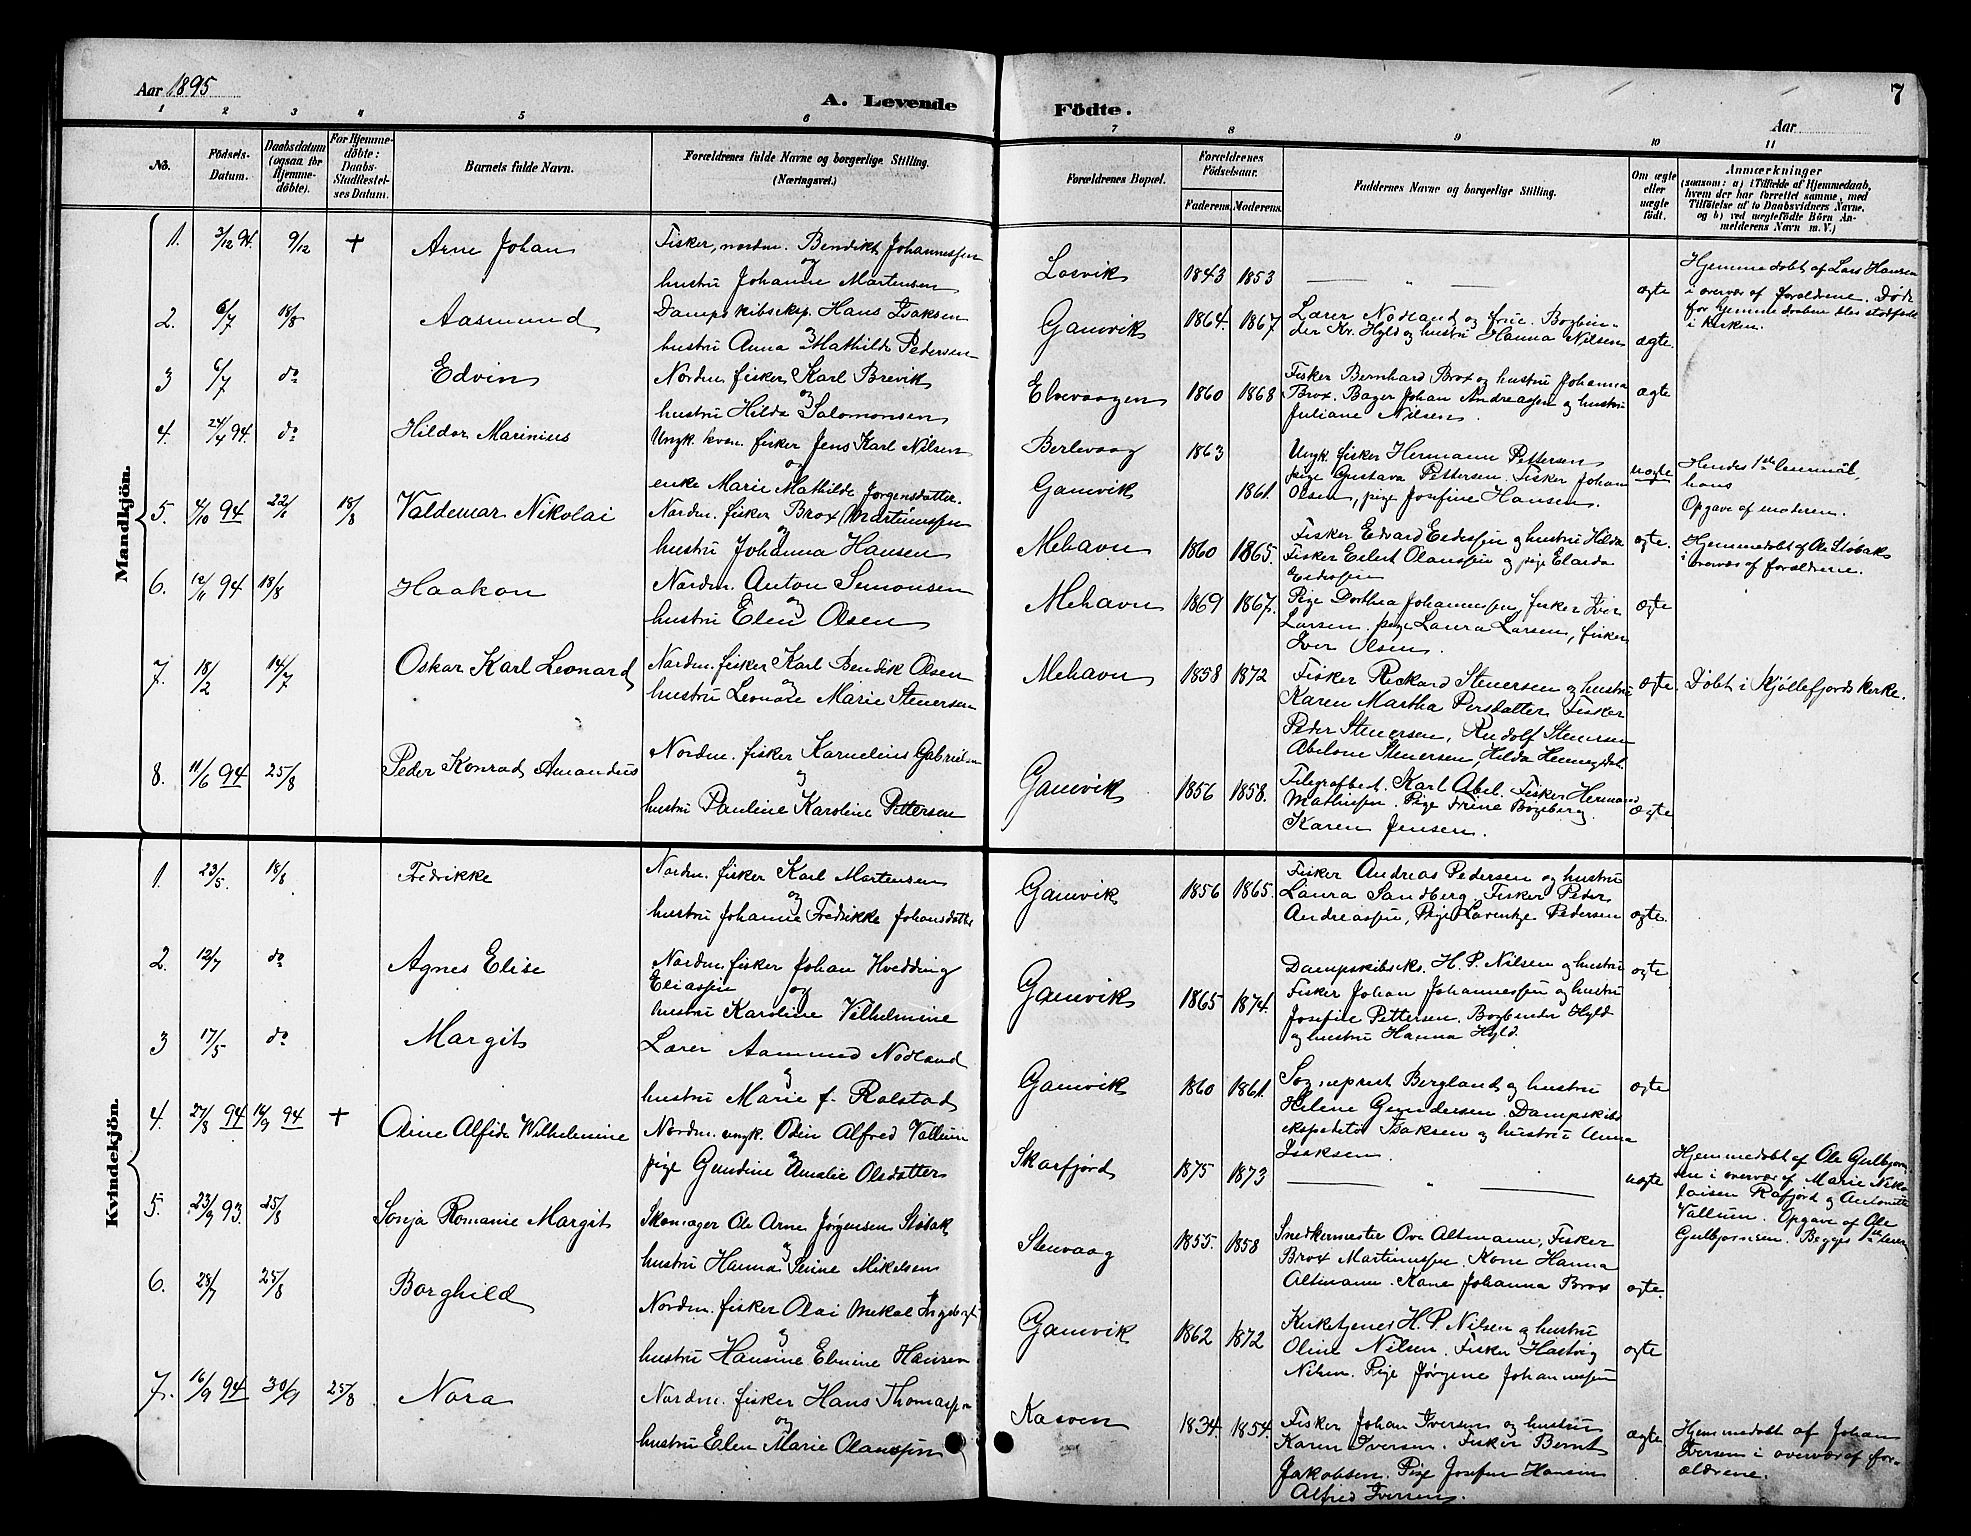 Aar 1895
A. Levende
Födte.
7
Aar
1
2
3
4
5
6
7
8
9
10
11
No.
Födsels-
Datum.
Daabsdatum
(ogsaa for
Hjemme-
döbte).
For Hjemme-
döbte:
Daabs-
Stadfæstel-
ses Datum.
Barnets fulde Navn.
Forældrenes fulde Navne og borgerlige Stilling.
(Næringsvei.)
Forældrenes Bopæl.
Forældrenes
Födselsaar.
Faderens.
Moderens.
Faddernes Navne og borgerlige Stilling.
Om ægte
eller
uægte
født.
Anmærkninger
(saasom: a) i Tilfælde af Hjemmedaab,
hvem der har forrettet samme, med
Tilföielse af to Daabsvidners Navne,
og b) ved uægtefödte Börn An-
melderens Navn m. V.)
Mandkjön.
1. 3/12 94. 9/12 + Arne Johan
Fisker, nordm. Bendikt Johannessen
og
hustru Johanne Martensen
Losvik 1843 1853
— " —
ægte
Hjemmedøbt af Lars Hansen
i overvær af forældrene. Døde
før hjemmedaaben blev stadfæstet
i kirken.
2. 6/7 18/8 Aasmund
Dampskibseksp. Hans Isaksen
og
hustru Anna Mathilde Pedersen
Gamvik 1864. 1867
Lærer Nödland og frue. Bogbin-
der Kr. Hyld og hustru Hanna Nilsen
ægte.
3 6/7 do Edvin
Nordm. fisker Karl Brevik
og
hustru Hilda Salomonsen
Elvevaagen 1860 1868
Fisker Bernhard Brox og hustru Johanna
Brox. Bager Johan Andreassen og hustru
Juliane Nilsen.
ægte
4. 24/4 94. do Hildor Marinius
Ungk. kvæn. fisker Jens Karl Nilsen
og
enke Marie Mathilde Jørgensdatter.
Berlevaag 1863
Gamvik 1861.
Ungk. fisker Hermann Pettersen
pige Gustava Pettersen. Fisker Johan
Olsen, pige Josefine Hansen.
uægte
Hendes 1ste leiermål,
hans
Opgave af moderen.
5. 4/10 94 22/1 18/8 Valdemar Nikolai
Nordm. fisker Brox Martinussen
og
hustru Johanna Hansen
Mehavn 1860 1865.
Fisker Edvard Eedessen og hustru Hilda
Fisker Eilert Olaussen og pige Elarda
Eedessen
ægte.
Hjemmedøbt af Ole Støbak
i overvær af forældrene.
6. 12/11 94 18/8 Haakon
Nordm. Anton Simonsen
og
hustru Elen Olsen
Mehavn 1869 1867.
Pige Dorthea Johannessen, fisker Iver
Larsen. pige Laura Larsen, fisker
Iver Olsen.
ægte
7. 18/2 14/7 Oskar Karl Leonard
Nordm. fisker Karl Bendik Olsen
og
hustru Leonore Marie Stenersen
Mehavn 1858 1872
Fisker Rickard Stenersen og hustru
Karen Martha Persdatter. Fisker
Peder Stenersen, Rudolf Stenersen
Abelone Stenersen, Hilda Henningsdat.
ægte.
Døbt i Kjøllefjords kirke.
8. 11/6 94 25/8 Peder Konrad Amandus
Nordm. fisker Karnelius Gabrielsen
og
hustru Pauline Karoline Pettersen
Gamvik 1856 1858.
Telegrafbest. Karl Abel. Fisker Hermand
Mathiesen. Pige Trine Bogeberg
Karen Jensen.
ægte
Kvindekjön.
1. 23/5. 18/8 Fredrikke
Nordm. fisker Karl Martensen
og
hustru Johanne Fredrikke Johansdatter
Gamvik 1856 1865.
Fisker Andreas Pedersen og hustru
Laura Sandberg. Fisker Peder
Andreassen, Pige Lorentze Pedersen
ægte.
2. 12/7 do Agnes Elise
Nordm. fisker Johan Hvedding
Eliassen og
hustru Karoline Vilhelmine
Gamvik 1865 1874.
Dampskibseks. H. P. Nilsen og hustru
Fisker Johan Johannessen og hustru
Josefine Pettersen. Bogbinder Hyld
og hustru Hanna Hyld.
ægte
3 17/5 do Margit
Lærer Aanmund Nödland
og
hustru Marie f. Rolstad
Gamvik 1860 1861.
Sogneprest Bergland og hustru
Helene Gundersen. Dampskibs
ekspeditør Isaksen og hustru Anna
Isaksen.
ægte
4. 27/8 94 16/9 94 + Odine Alfide Wilhelmine
Nordm. ungk. Odin Alfred Vallum
og
pige Gundine Amalie Olsdatter
Skarfjord 1875 1873
— " —
uægte
Hjemmedøbt af Ole Gulbjørn-
sen i overvær af Marie Niko-
laisen Rafjord og Antonette
Vallum. Opgave af Ole
Gulbjørnsen. Begges 1ste leier
5. 23/9 93. 25/8 Sonja Romanie Margit
Skomager Ole Arne Jørgensen Støbak
og
hustru Hanna Serine Mikelsen
Stenvaag 1855. 1858
Snedkermester Ove Altmann, Fisker
Brox Martinussen. Kone Hanna
Altmann. Kone Johanna Brox
ægte.
6. 23/7 25/8 Borghild
Nordm. fisker Olai Mekal Ingebrigt
og
hustru Hansine Elmine Hansen
Gamvik 1862 1872
Kirketjener H. P. Nilsen og hustru
Oline Nilsen. Fisker Hartvig
Nilsen. Pige Jørgine Johannessen
ægte
7. 16/9 94 30/9 25/8 Nora
Nordm. fisker Hans Thomassen
og
hustru Elen Marie Olaussen
Kasven 1834. 1854.
Fisker Johan Iversen og hustru
Karen Iversen. Fisker Bernt
Jakobsen. Pige Josefine Hansen
Alfred Iversen.
ægte
Hjemmedøbt af Johan
Iversen i overvær af for-
ældrene.